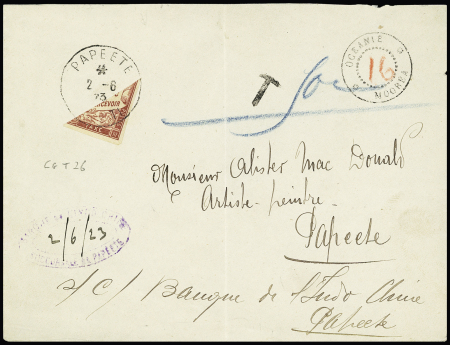 PAPEETE
2 - 6
23
PERCEVOIR
T
OCEANIE
16
MOOREA
CG T 26
Monsieur Alister Mac Donald
Artiste-peintre
Papeete
2/6/23
DE PAPEETE
s/c/ Banque de l'Indo Chine
Papeete